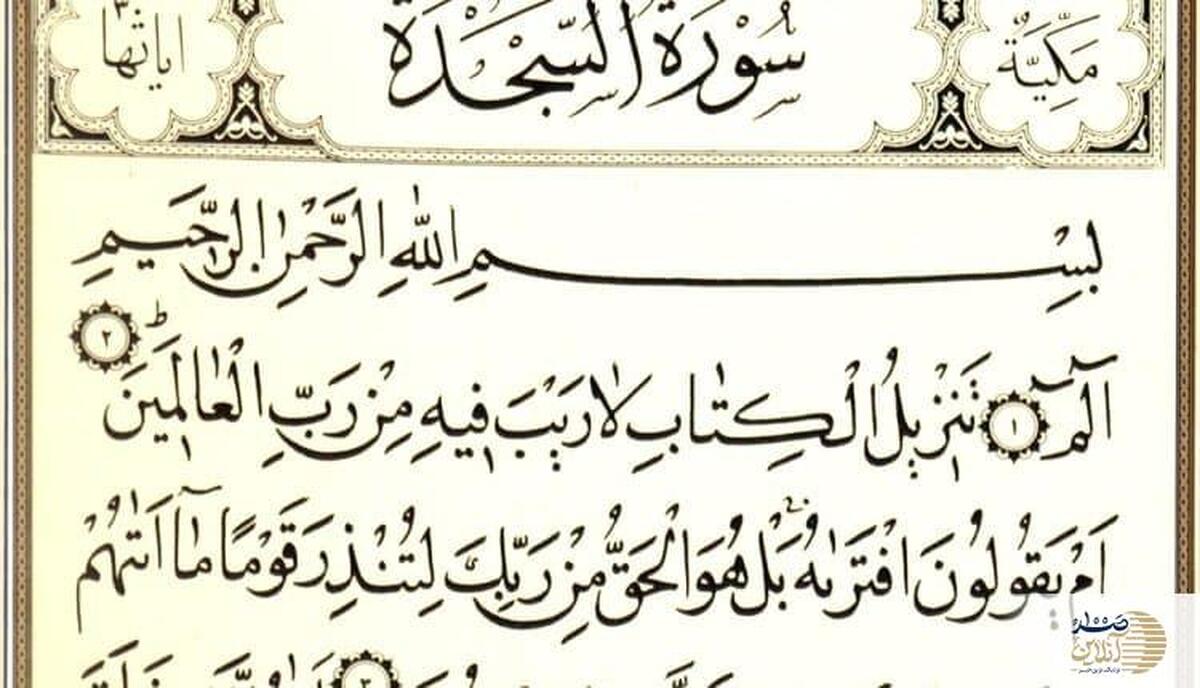 مَكِّيَّةٌ
سُوْرَةُ السَّجْدَةِ
۳۰ اٰيَاتُهَا
بِسْمِ اللّٰهِ الرَّحْمٰنِ الرَّحيمِ
الٓمٓ ۱ تَنْزيلُ الْكِتٰابِ لٰا رَيْبَ فيهِ مِنْ رَبِّ الْعٰالَمينَ ۲
اَمْ يَقُولُونَ افْتَرٰيهُ بَلْ هُوَ الْحَقُّ مِنْ رَبِّكَ لِتُنْذِرَ قَوْمًا مٰٓا اَتٰيهُمْ
۳
صَدا آنلاین